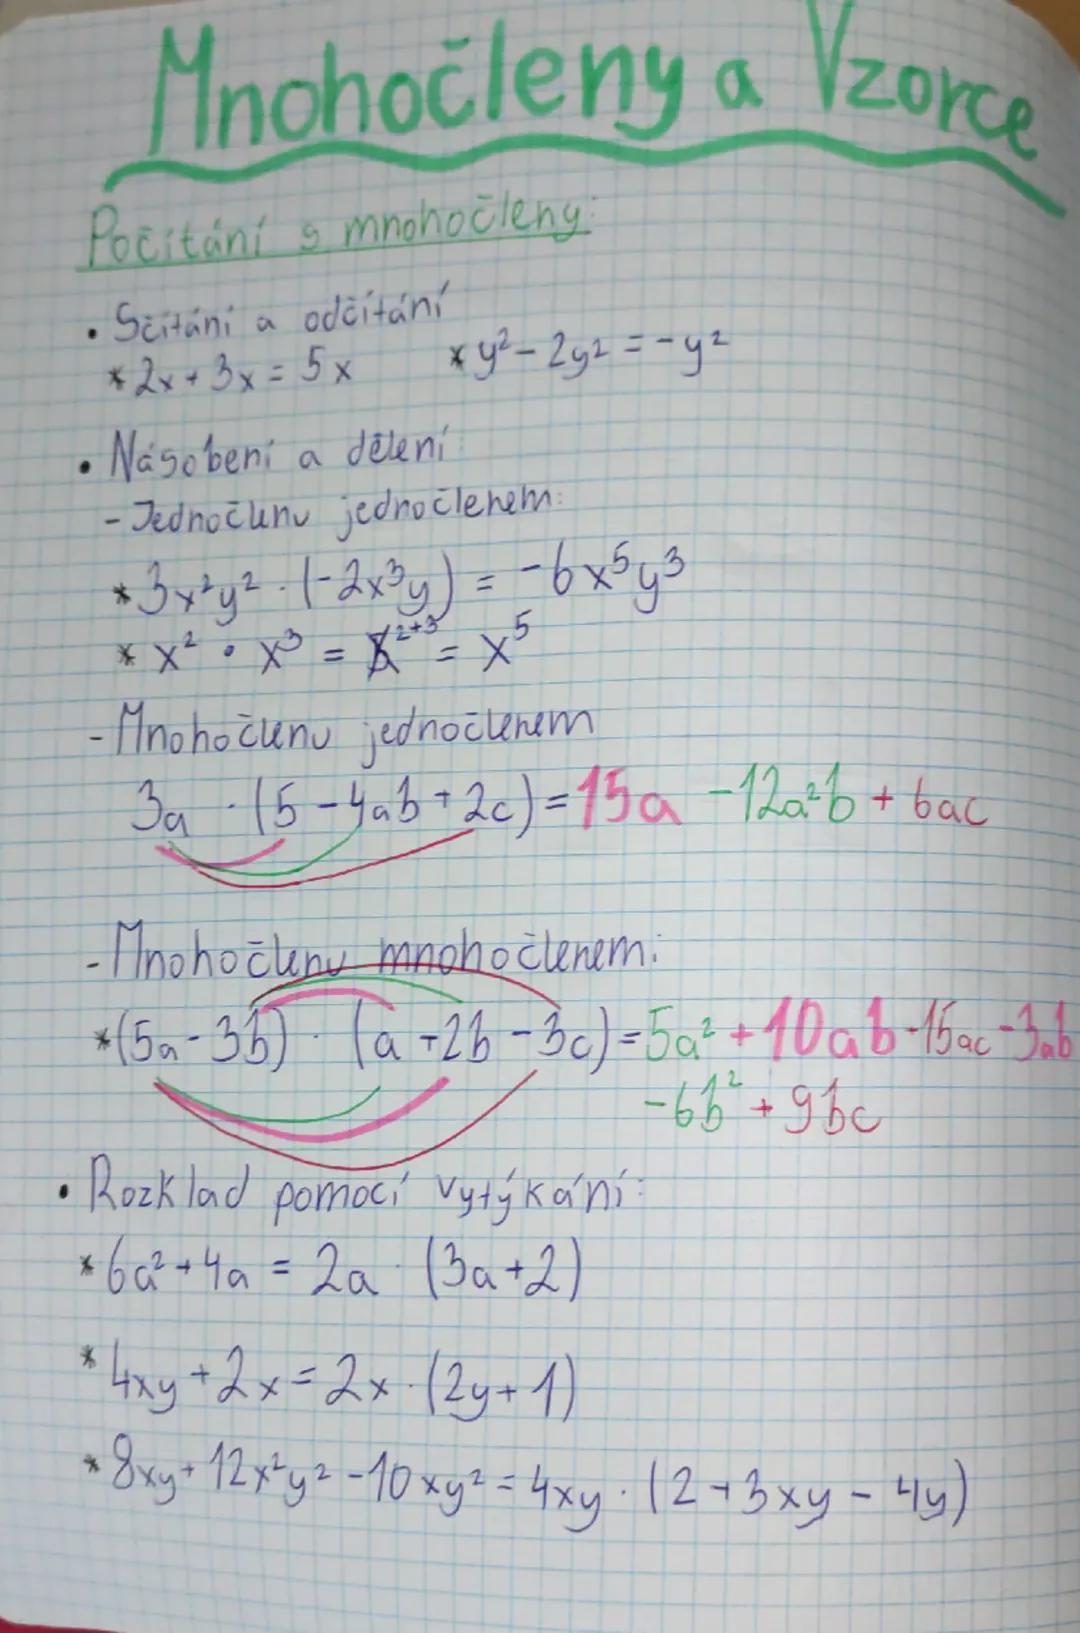 Mnohočleny a Vzorce
Počítání s mnohočleny:
• Sčítání a odčítání
* 2x + 3x = 5x * y² - 2y² = -y²
• Násobení a dělení:
- Jednočlenu jednočlenem:
* 3x²y² · (-2x³y) = -6x⁵y³
* x² · x³ = x²⁺³ = x⁵
- Mnohočlenu jednočlenem
3a · (5 - 4ab + 2c) = 15a - 12a²b + 6ac
- Mnohočlenu mnohočlenem:
* (5a - 3b) · (a + 2b - 3c) = 5a² + 10ab - 15ac - 3ab
- 6b² + 9bc
• Rozklad pomocí vytýkání:
* 6a² + 4a = 2a · (3a + 2)
* 4xy + 2x = 2x · (2y + 1)
* 8xy + 12x²y² - 10xy² = 4xy · (2 + 3xy - 4y)